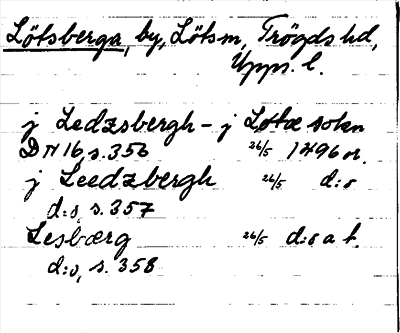 Lötsberga, by, Löts sn, Trögds hd,
Upps. l.
j Ledzsbergh - j Løtæ sokn
DN 16, s. 356 26/5 1496 or.
j Leedzbergh 26/5 d:o
d:o, s. 357
Lesbærg 26/5 d:o a f.
d:o, s. 358